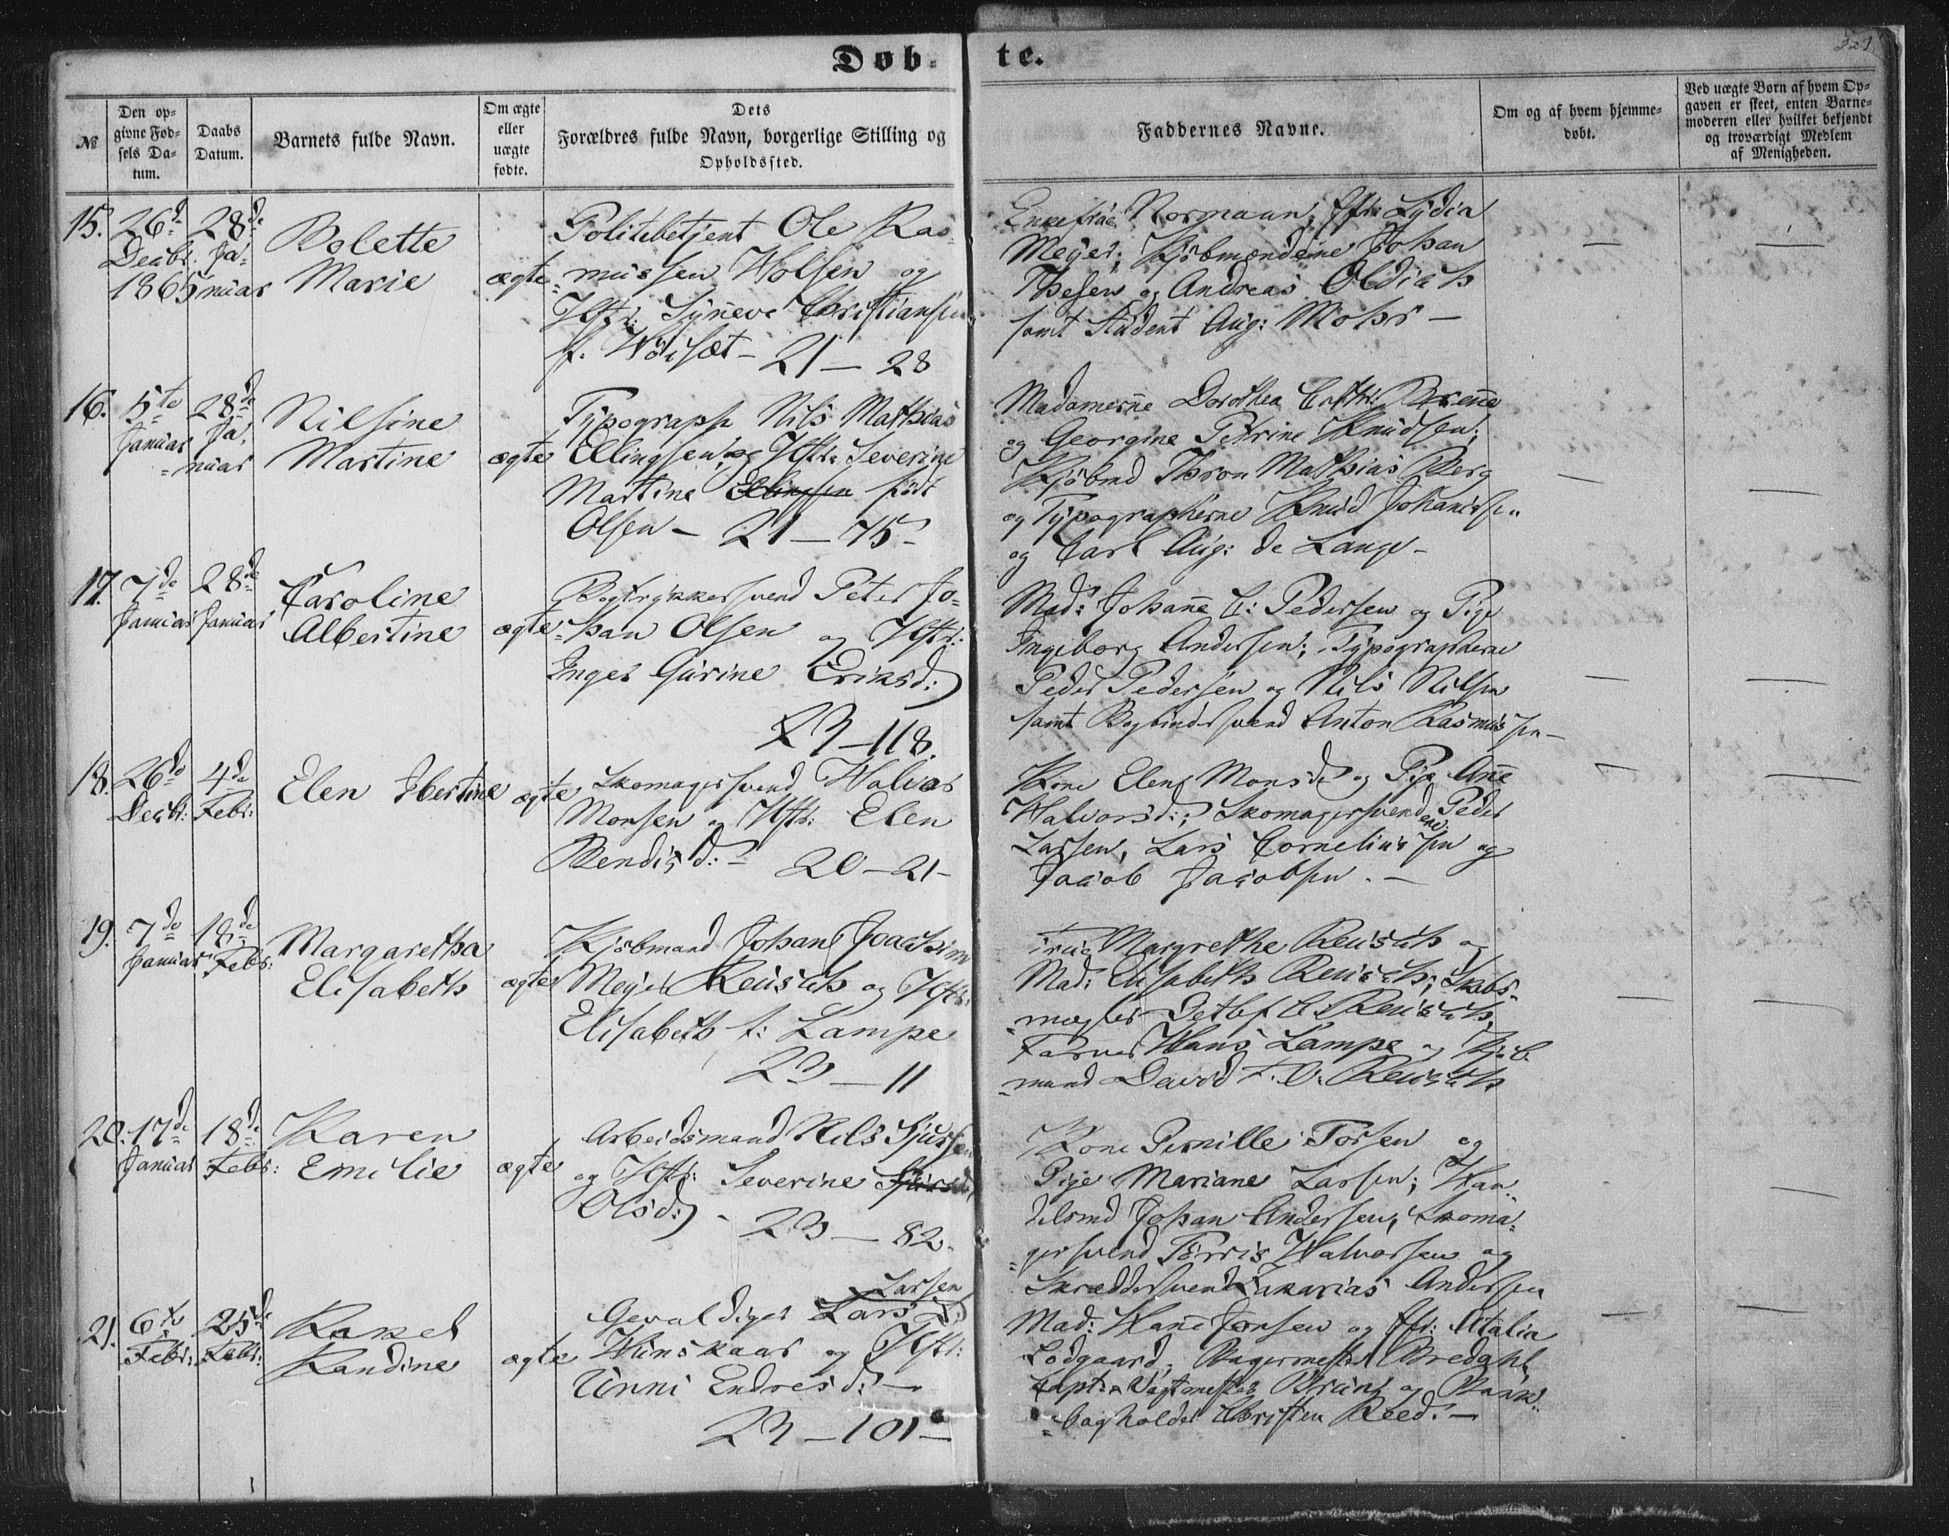 Døb-
te.
№
Den op-
givne Fød-
sels Da-
tum.
Daabs
Datum.
Barnets fulde Navn.
Om ægte
eller
uægte
fødte.
Dets
Forældres fulde Navn, borgerlige Stilling og
Opholdssted.
Faddernes Navne.
Om og af hvem hjemme-
døbt.
Ved uægte Børn af hvem Op-
gaven er skeet, enten Barne-
moderen eller hvilket bekjendt
og troværdigt Medlem
af Menigheden.
15. 26d
Decbr.
1865
28de
Ja-
nuar
Bolette
Marie
ægte
Politibetjent Ole Ras-
mussen Wolsen og
Hstr: Synneve Christiansen
f. Wöisæt - 21 - 28
Enkefrue Normann, Lydia
Meyer, Kjöbmændene Johan
Thesen og Andreas
samt Student Aug: Mohr -
16. 5te
Januar
28de
Ja-
nuar
Nilsine
Martine
ægte
Typograph Nils Mathias
Ellingsen og Hstr: Severine
Martine Ellingsen född
Olsen - 21 - 75 -
Madamerne Dorothea Cathr:
og Georgine Petrine Knudsen,
Kjöbmd Mathias Berg
og Typographerne Knud
og Carl Aug: de Lange -
17. 7de
Januar
28de
Januar
Caroline
Albertine
ægte
Bogtrykkersvend Peter Jo-
han Olsen og Hstr:
Inger Gurine Eriksd:
23 - 118.
Mad: Johanne C: Pedersen og Pige
Ingeborg Andersen, Typographerne
Peder Pedersen og Nils Nilsen
samt Bogbindersvend Anton Rasmussen -
18. 26de
Decbr:
4de
Febr:
Elen Ibertine
ægte
Skomagersvend Halvor
Monsen og Hstr: Elen
Bendisd: - 20 - 21 -
Kone Elen Monsd og Pige Anne
Halvorsd:, Skomagersvendene Peder
Larsen, Lars Corneliussen og
Jacob Jacobsen. -
19. 7de
Januar
18de
Febr:
Margaretha
Elisabeth
ægte
Kjöbmand Johan Joachim
Meyer Reusch og Hstr:
Elisabeth f: Lampe
23 - 11
Frue Margrethe Reusch og
Mad: Elisabeth Reusch, Skibs-
mægler Detlef C Reusch,
Farver Hans Lampe og Kjöb-
mand David Reusch
20. 17de
Januar
18de
Febr:
Karen
Emilie
ægte
Arbeidsmand Nils Sjursen
og Hstr: Severine
Olsd: - 23 - 82.
Kone Pernille Torsen og
Pige Mariane Larsen, Han-
delsmd Johan Andersen, Skoma-
gersvend Torris Halvorsen og
Skræddersvend Zakarias Andersen
21. 6te
Febr:
25de
Febr:
Rakel
Randine
ægte
Larsen
Gevaldiger Lars
Hunskaar og Hstr:
Unni Endresd: -
23 - 101 -
Mad: Hanne Jonsen og
Lodgaard, Bagermester Bredahl,
Vagtmester Bruns og Bank-
bogholder Christen Reed. -